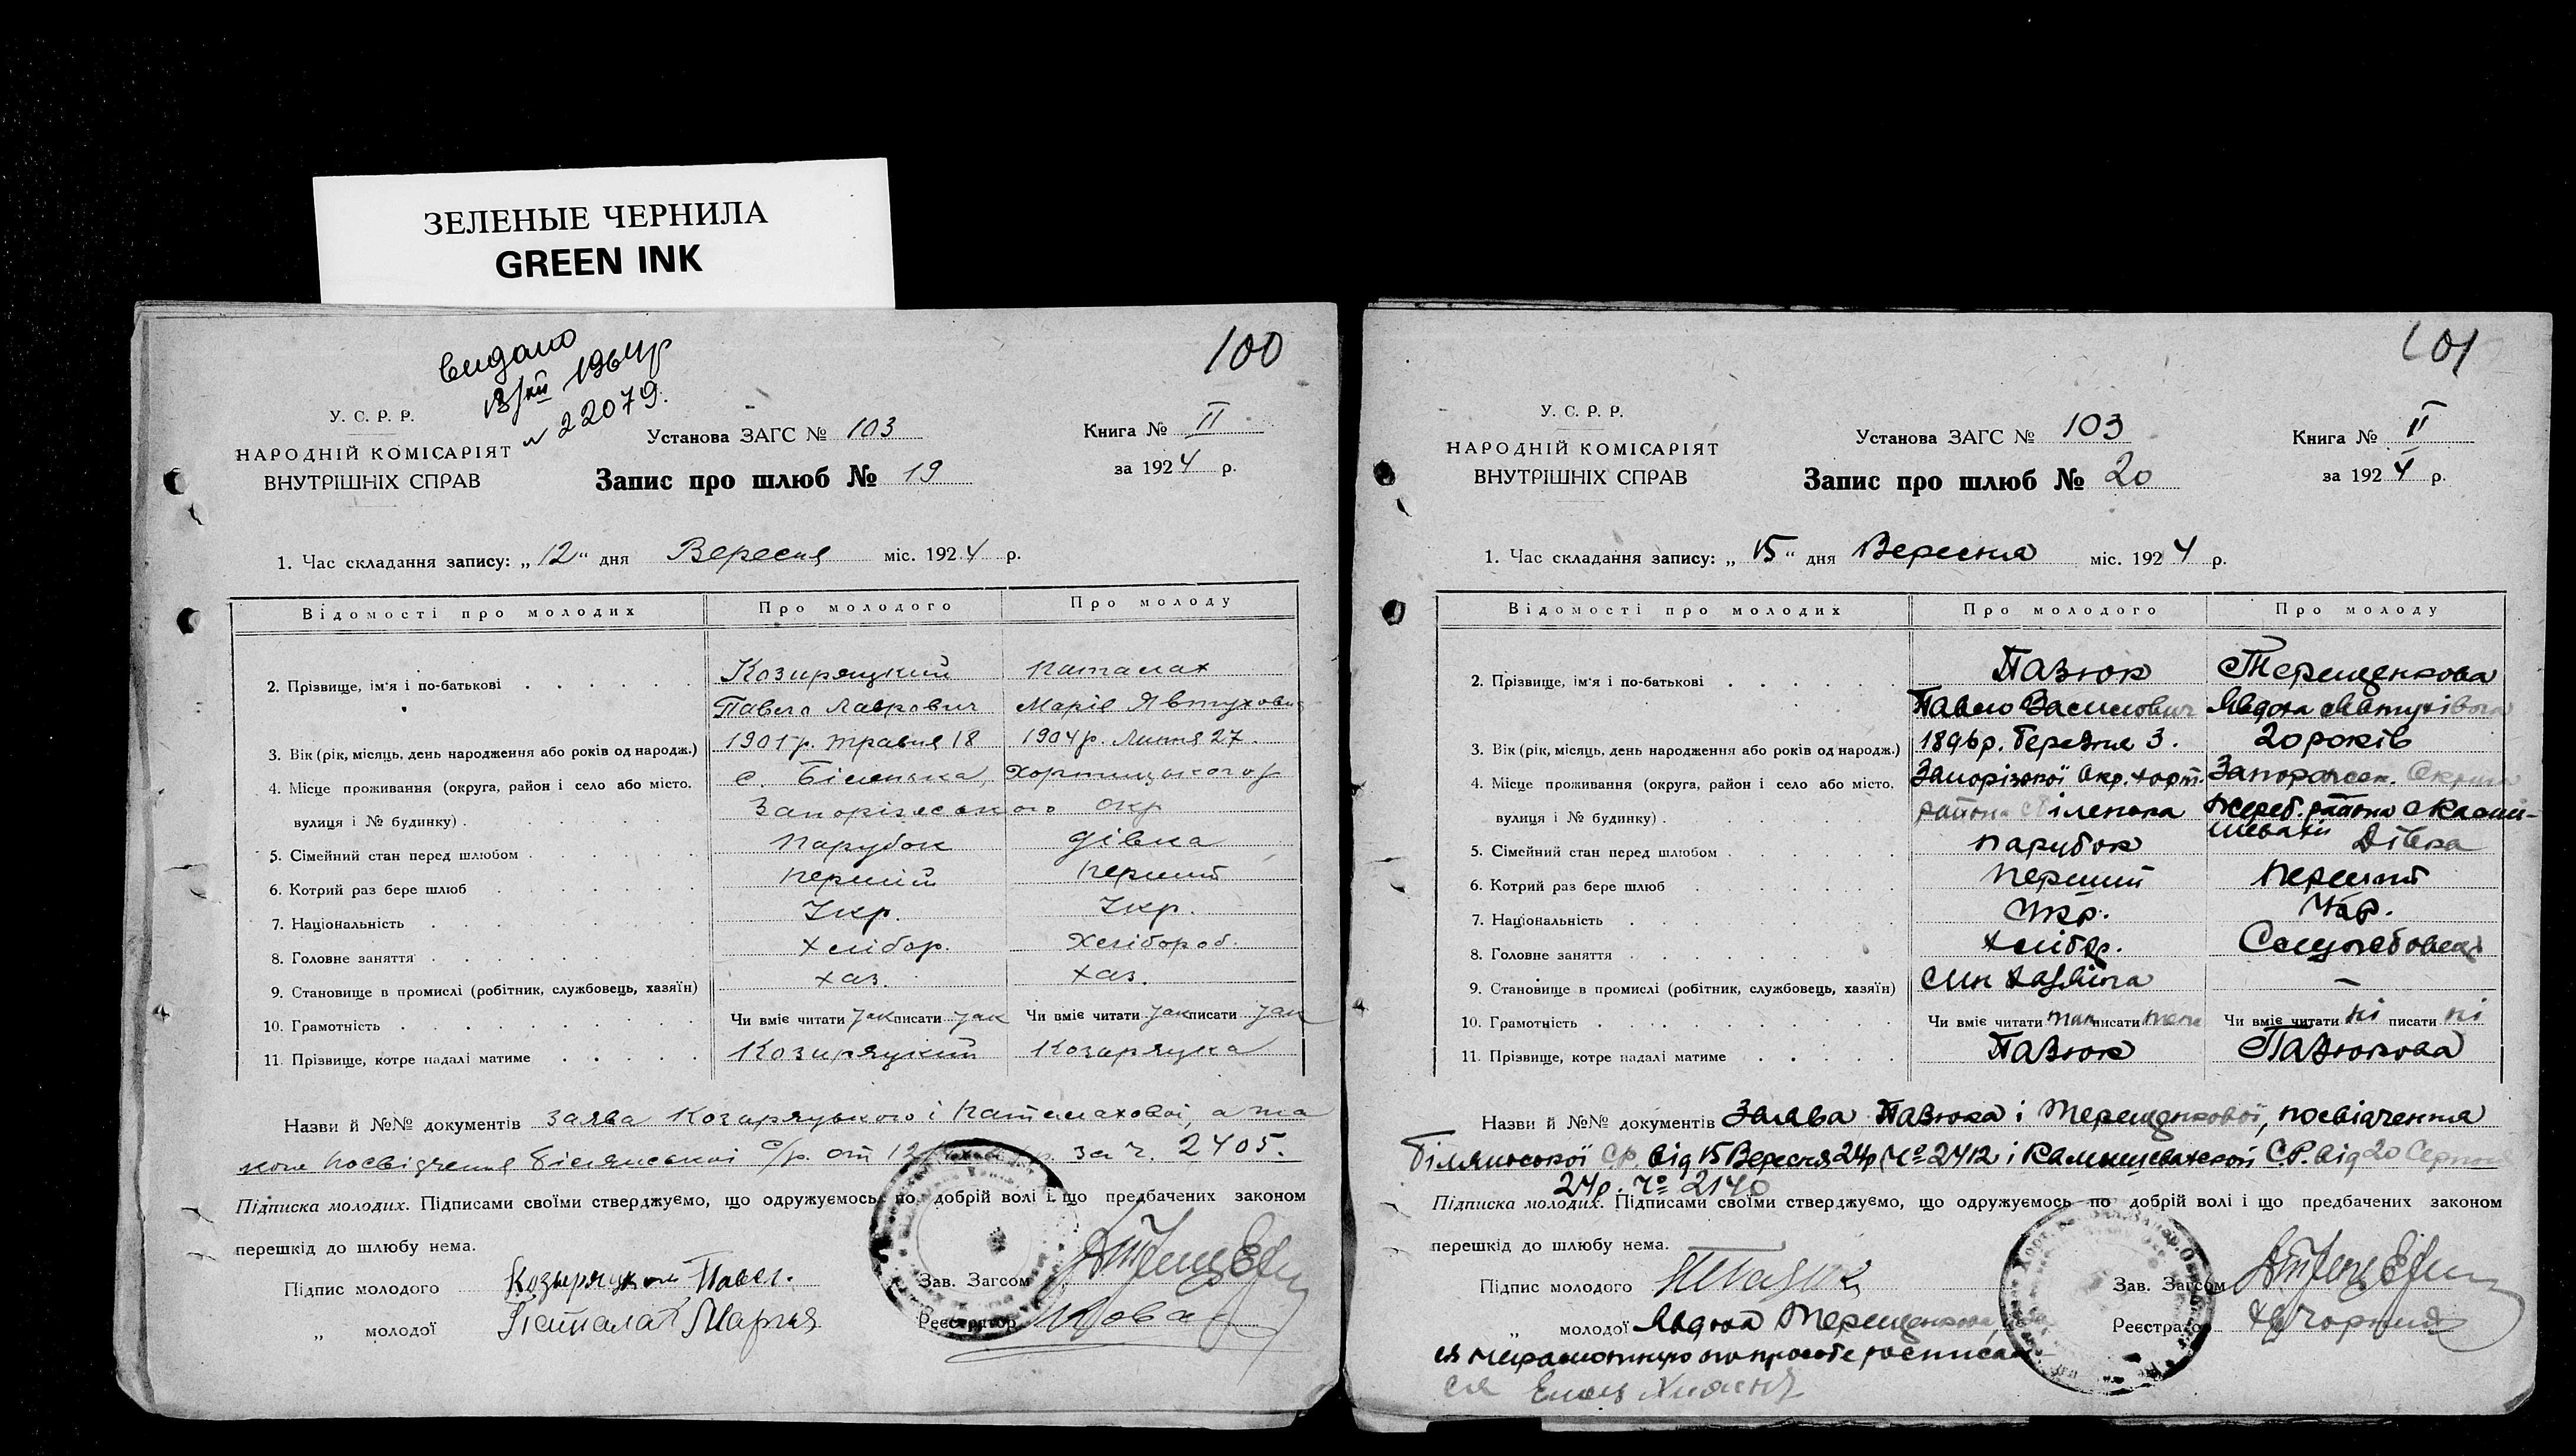 ЗЕЛЕНЫЕ ЧЕРНИЛА
GREEN INK
видано
1964р
№ 22079.
100
У. С. Р. Р.
НАРОДНІЙ КОМІСАРІЯТ
ВНУТРІШНІХ СПРАВ
Установа ЗАГС № 103
Книга № II
Запис про шлюб № 19
за 1924 р.
1. Час складання запису: „12“ дня Вересня міс. 1924 р.
Відомості про молодих Про молодого Про молоду
2. Прізвище, ім'я і по-батькові Козиряцкий Паталах
Павло Лаврович Марія Явтухов
3. Вік (рік, місяць, день народження або років од народж.) 1901 р. травня 18 1904 р. Липня 27.
4. Місце проживання (округа, район і село або місто, с. Біленька, Хортицького р
вулиця і № будинку) Запорізького окр
5. Сімейний стан перед шлюбом парубок дівка
6. Котрий раз бере шлюб перший перший
7. Національність Укр. Укр.
8. Головне заняття хлібор. Хлібороб.
9. Становище в промислі (робітник, службовець, хазяїн) хаз. хаз.
10. Грамотність Чи вміє читати так писати так Чи вміє читати так писати так
11. Прізвище, котре надалі матиме Козиряцкий Козаряцка
Назви й №№ документів заява Козаряцького і Паталахової, а та
кож посвідчення Білянської с/р. от 12 за ч. 2405.
Підписка молодих. Підписами своїми стверджуємо, що одружуємось по добрій волі і що предбачених законом
перешкід до шлюбу нема.
Підпис молодого Козыряцкий Павел.
„ молодої Паталах Мария
Зав. Загсом
Реєстратор
101
У. С. Р. Р.
НАРОДНІЙ КОМІСАРІЯТ
ВНУТРІШНІХ СПРАВ
Установа ЗАГС № 103
Книга № II
Запис про шлюб № 20
за 1924 р.
1. Час складання запису: „15“ дня Вересня міс. 1924 р.
Відомості про молодих Про молодого Про молоду
2. Прізвище, ім'я і по-батькові Пазюк Терещенкова
Павло Василович Явдоха Явтухівна
3. Вік (рік, місяць, день народження або років од народж.) 1896р. Березня 3. 20 років
4. Місце проживання (округа, район і село або місто, Запорізької Окр. Хорт. Запорожск. Округи
вулиця і № будинку) района с Біленька Жереб. района с Камы-
шевахи
5. Сімейний стан перед шлюбом парубок Дівка
6. Котрий раз бере шлюб перший перший
7. Національність Укр. Укр.
8. Головне заняття хлібор. Служебовець
9. Становище в промислі (робітник, службовець, хазяїн) Син хазяїна —
10. Грамотність Чи вміє читати так писати так Чи вміє читати ні писати ні
11. Прізвище, котре надалі матиме Пазюк Пазюкова
Назви й №№ документів Заява Пазюка і Терещенкової, посвідчення
Білянської С.Р. від 15 Вересня 24р №2412 і Камышеватской С.Р. від 20 Серпня
24р. № 2140
Підписка молодих. Підписами своїми стверджуємо, що одружуємось по добрій волі і що предбачених законом
перешкід до шлюбу нема.
Підпис молодого
„ молодої Явдоха Терещенкова
Зав. Загсом
Реєстратор